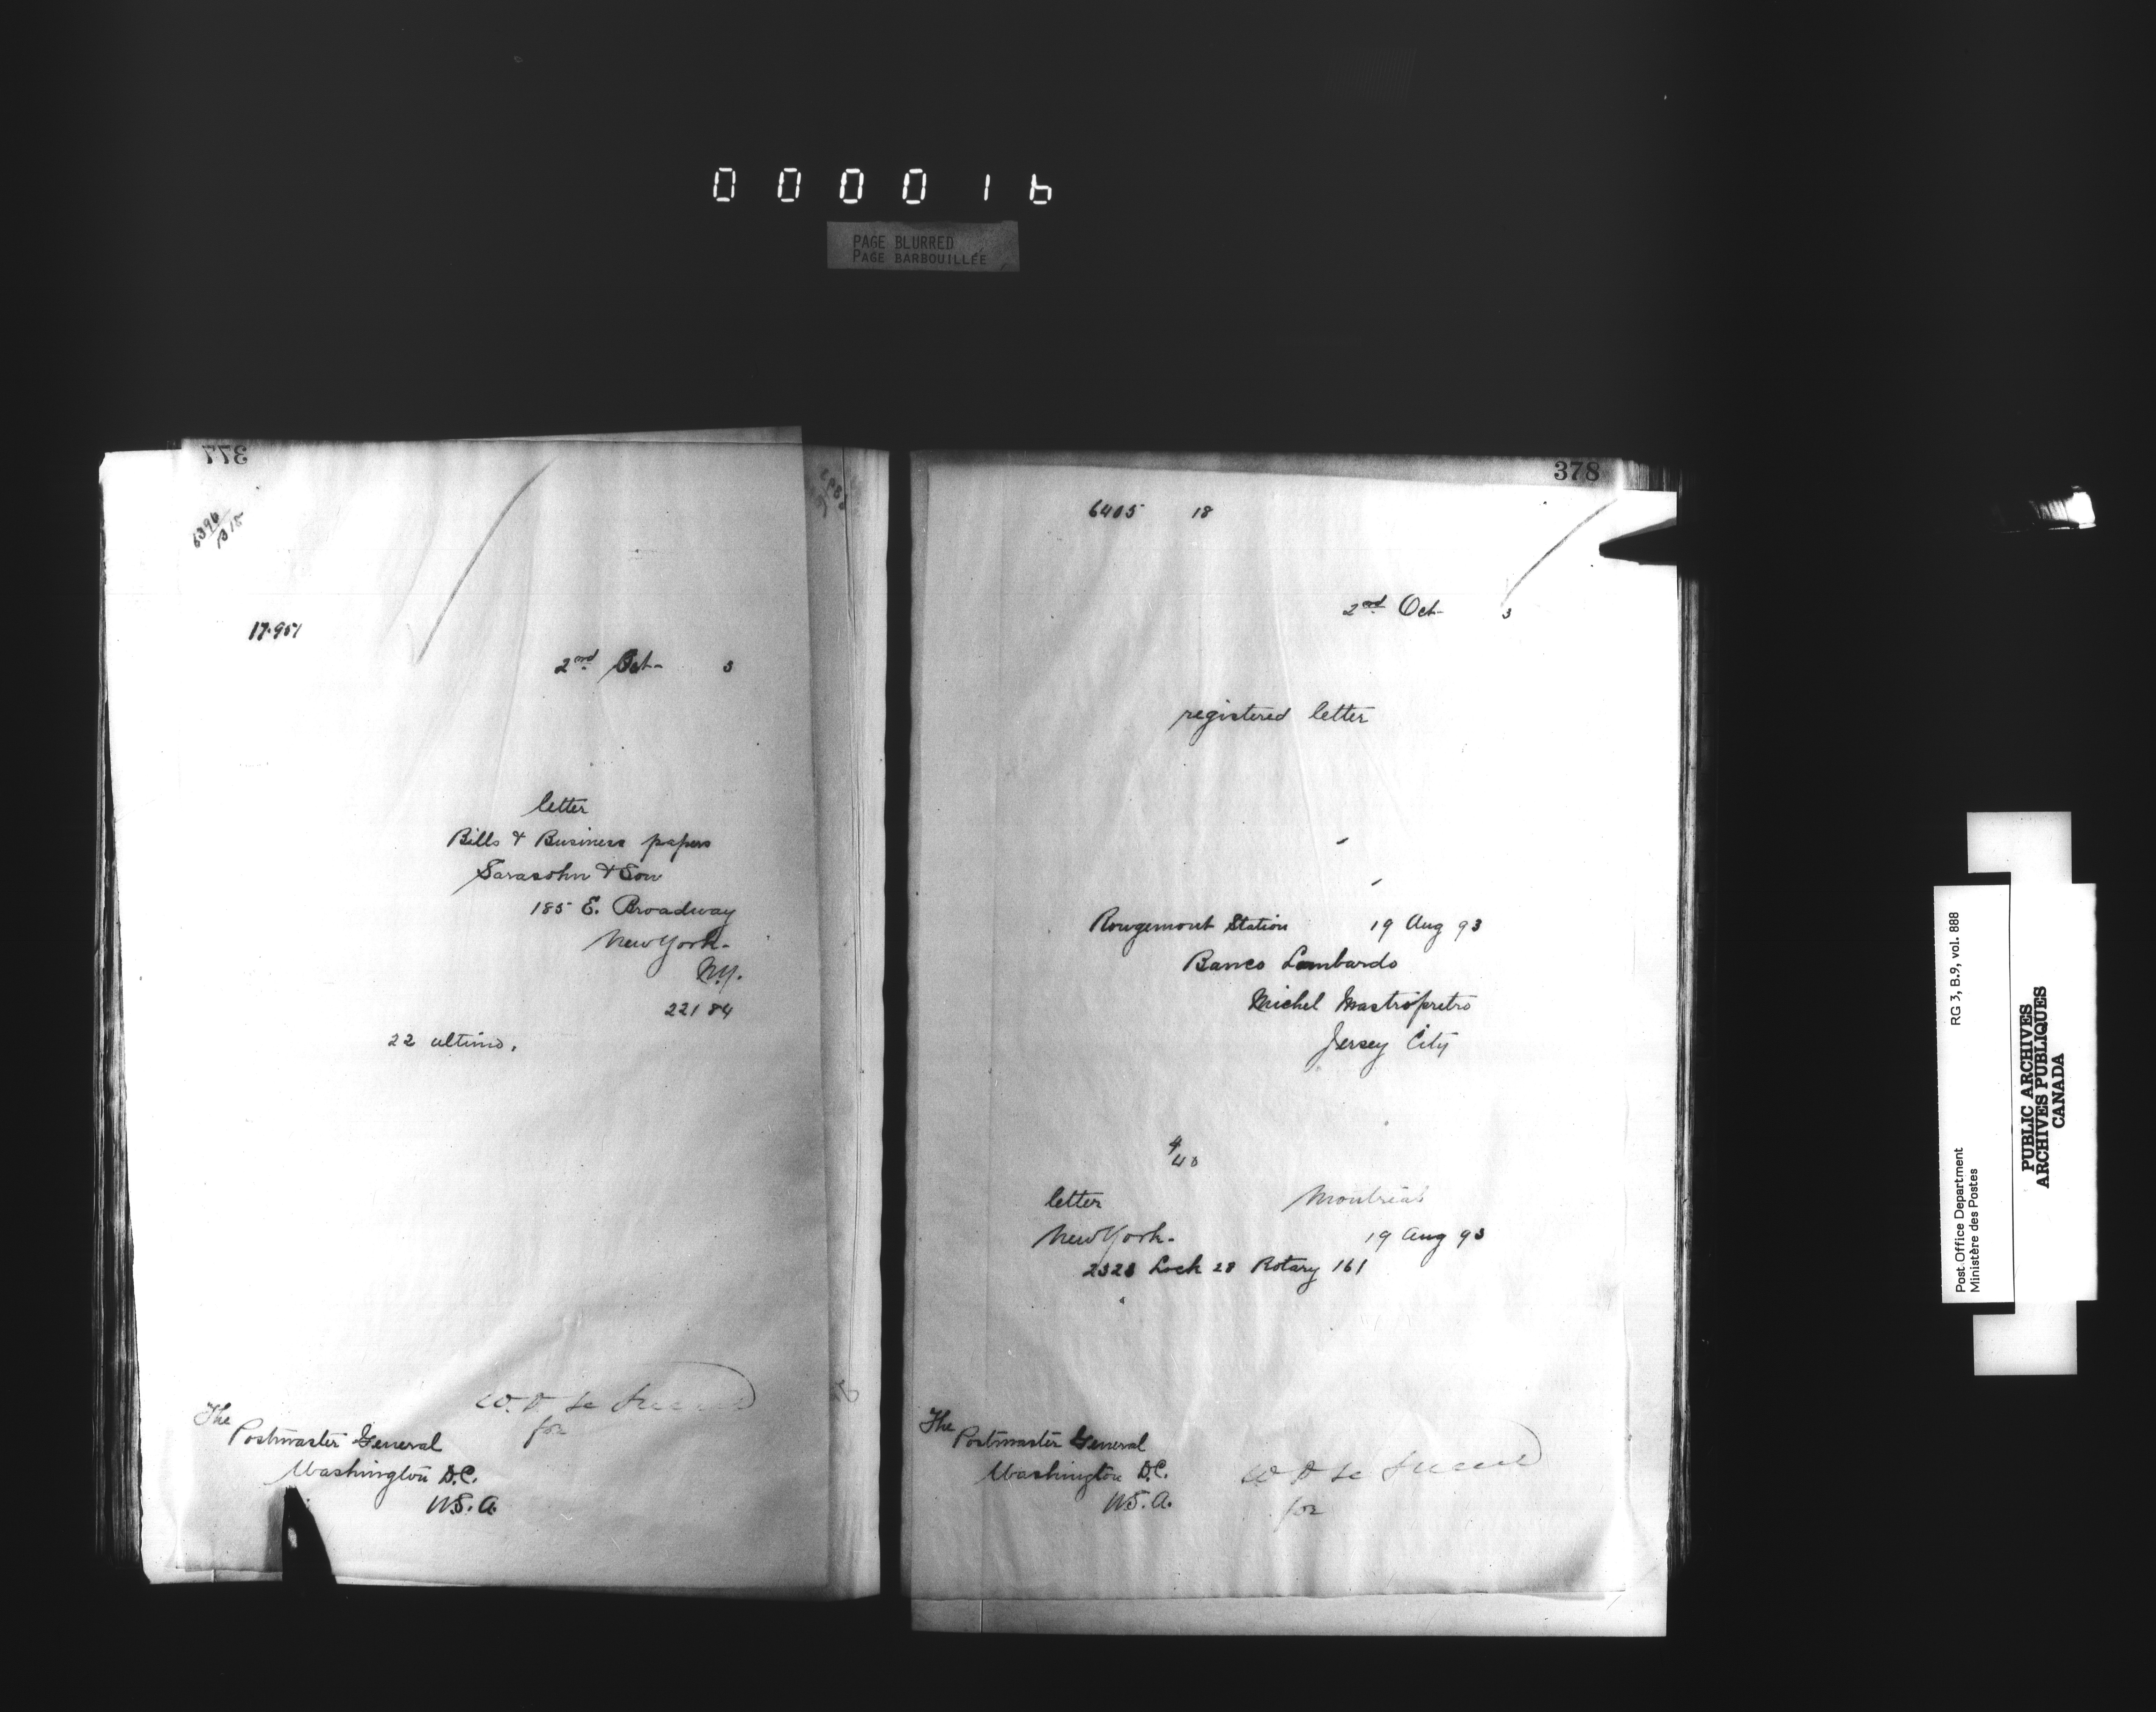 000016
PAGE BLURRED
PAGE BARBOUILLÉE
377
6396
B 18
17.951
2nd Oct 3
letter
Bills & Business papers
Sarasohn & Son
185 E. Broadway
New York.
N.Y.
22184
22 ultimo.
for
The
Postmaster General
Washington D.C.
U.S.A.
378
6405 18
2nd Oct 3
registered letter
Rougemont Station 19 Aug 93
Banco Lombardo
Michel Mastropretro
Jersey City
4/40
letter Montreal
New York. 19 Aug 93
2328 Lock 28 Rotary 161
The
Postmaster General
Washington D.C.
U.S.A.
for
Post Office Department
Ministère des Postes
RG 3, B.9, vol. 888
PUBLIC ARCHIVES
ARCHIVES PUBLIQUES
CANADA